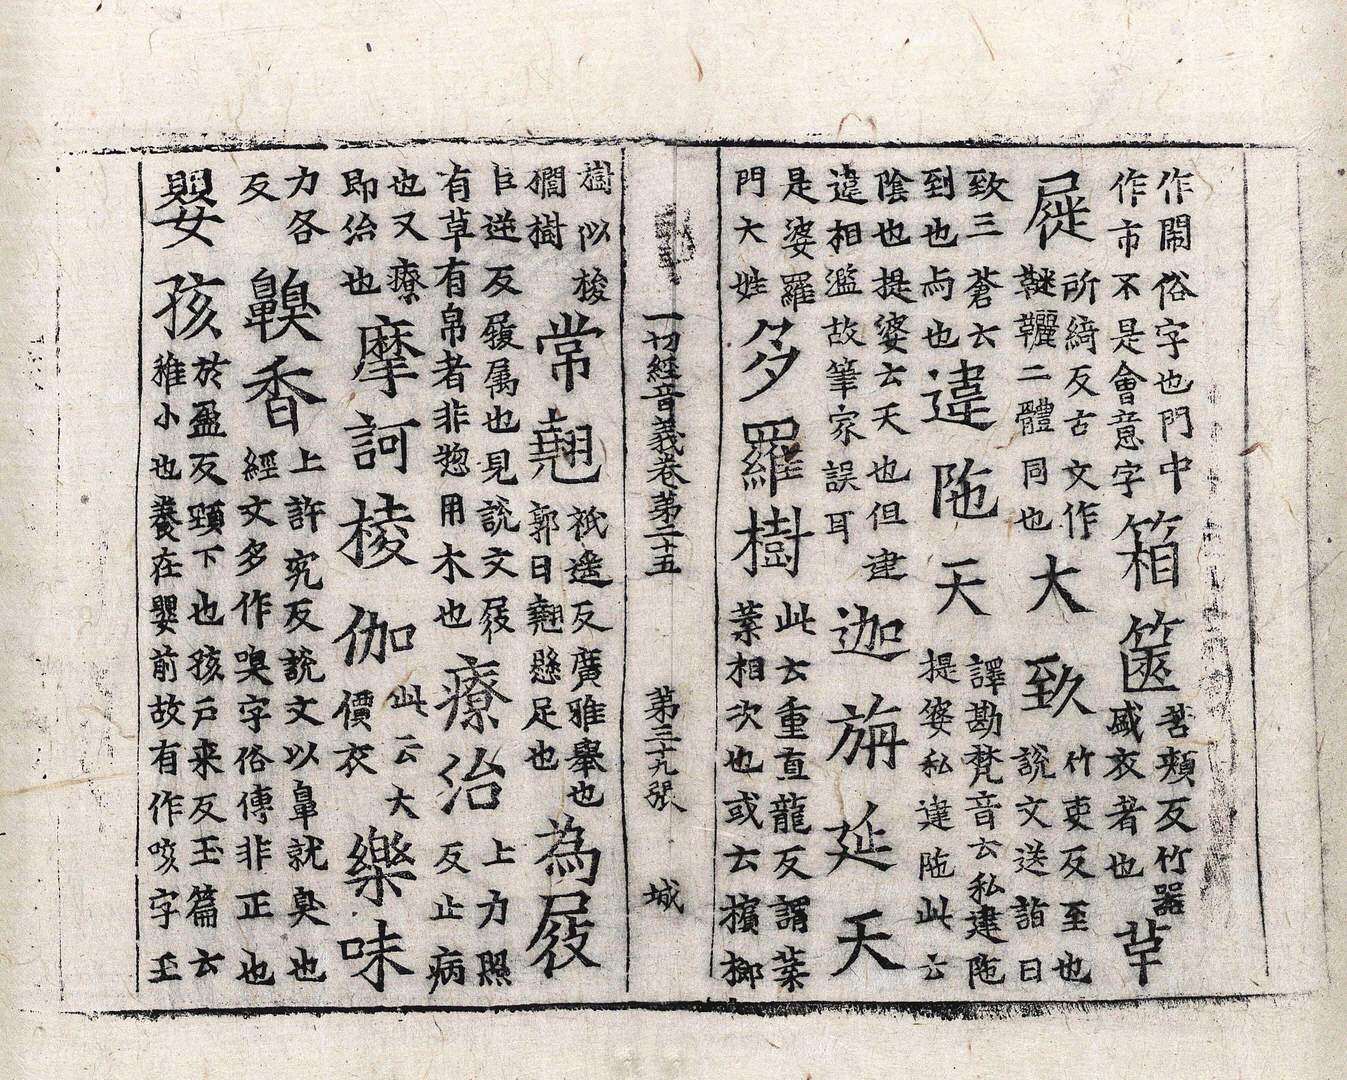 作鬧俗字也門中作市不是會意字箱篋苦頰反竹器盛衣者也草
屣所綺反古文作二體同也大致竹吏反至也說文送詣曰
致三蒼云到也与也違陁天譯勘梵音云私建陁提婆私違陁此云
陰也提婆云天也但建違相濫故筆家誤耳迦旃延天
是婆羅門大姓多羅樹此云重直龍反謂葉葉相次也或云檳榔
一切經音義卷第二十五 第三十九張 城
樹似椶櫚樹常翹祇遥反廣雅舉也郭曰翹懸足也為屐
巨逆反履属也見説文屐有草有帛者非惣用木也療治上力照反止病
也又療即治也摩訶棱伽此云大價衣樂味
力各反齅香上許究反説文以鼻就臭也經文多作嗅字俗傳非正也
嬰孩於盈反頸下也孩戶来反玉篇云稚小也養在嬰前故有作咳字玉